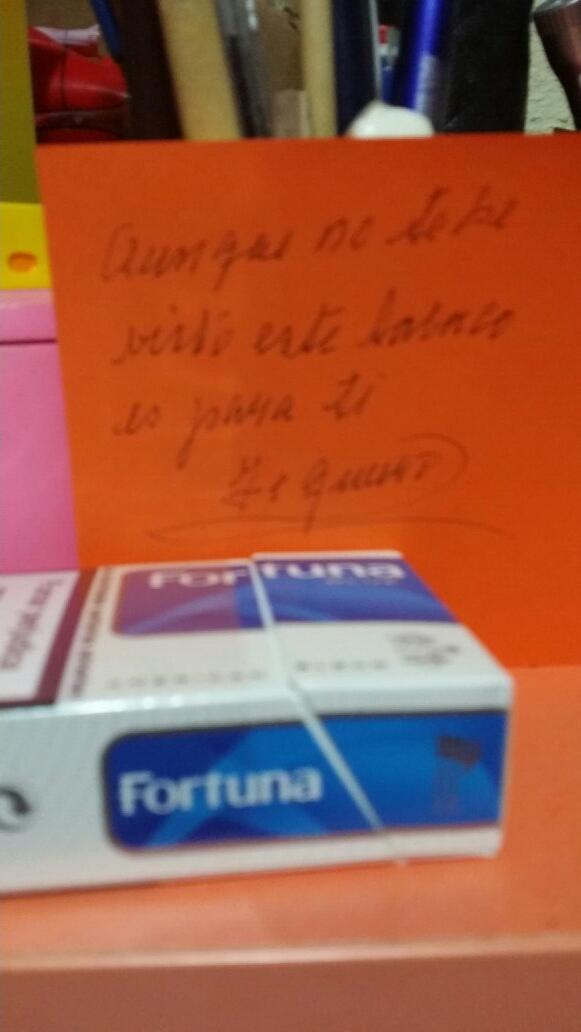 Aunque no te he
visto este tabaco
es para ti
Te quiero
Fortuna
Fortuna